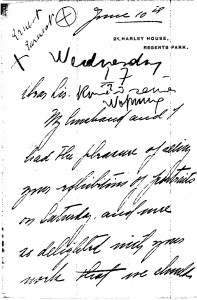 June 10th
24, HARLEY HOUSE,
REGENTS PARK.
Wednesday
17
Dear Sir.
My husband and I
had the pleasure of seeing
your exhibition of portraits
on Saturday, and were
so delighted with your
work that we should